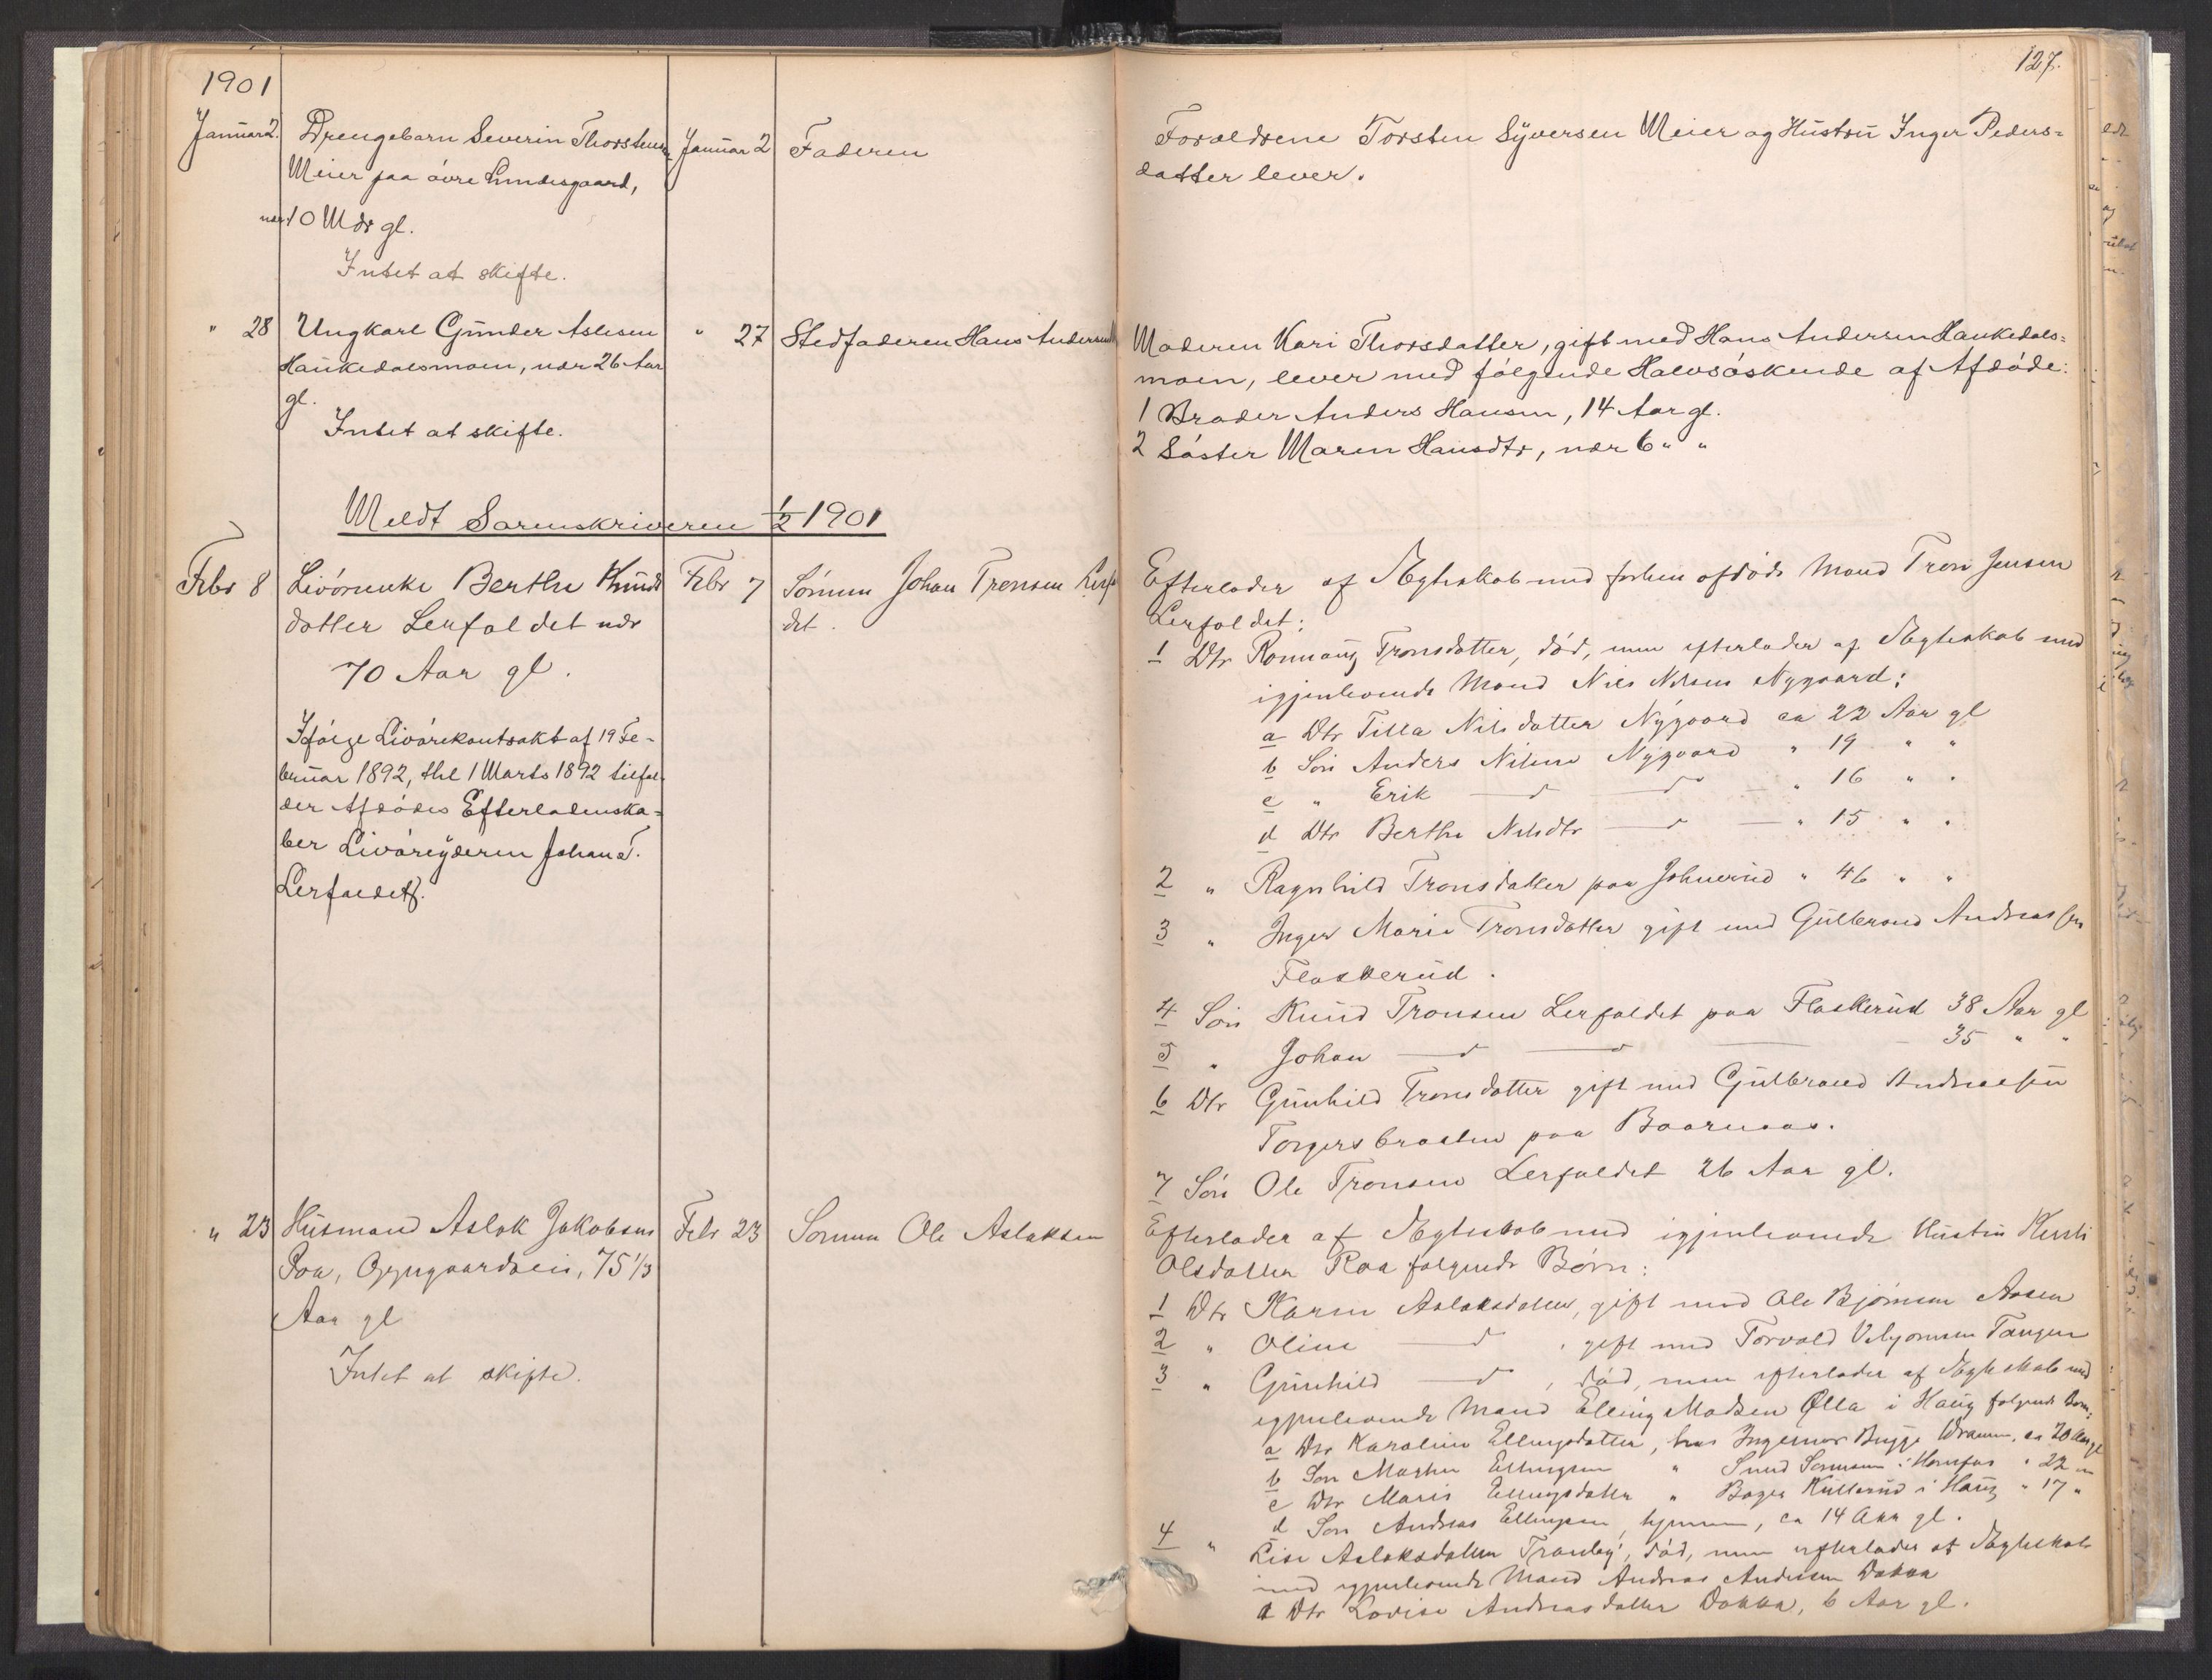 1901
127.
Januar 2. Drengebarn Severin Thorstensen Januar 2 Faderen
Meier paa øvre Lundesgaard,
nær 10 Mdr gl.
Intet at skifte.
Forældrene Torsten Syversen Meier og Hustru Inger Peders=
datter lever.
" 28 Ungkarl Gunder Aslesen " 27 Stedfaderen Hans Andersen
Haukedalsmoen, nær 26 Aar
gl.
Intet at skifte.
Moderen Kari Thorsdatter, gift med Hans Andersen Haukedals=
moen, lever med følgende Halvsøskende af Afdøde:
1 Broder Anders Hansen, 14 Aar gl.
2 Søster Maren Hansdtr, nær 6 " "
Meldt Sorenskriveren 1/2 1901
Febr 8 Livørenke Berthe Knuds Febr 7 Sønnen Johan Tronsen Lerfal
datter Lerfaldet nær det.
70 Aar gl.
Ifølge Livørekontrakt af 19 Fe-
bruar 1892, thl 1 Marts 1892 tilfal-
der Afdødes Efterladenska=
ber Livøreyderen Johan T.
Lerfaldet.
Efterlader af Ægteskab med forhen afdøde Mand Tron Jensen
Lerfaldet:
1 Dtr Ronnaug Tronsdatter, død, men efterlader af Ægteskab med
igjenlevende Mand Nils Nilsen Nygaard:
a Dtr Tilla Nilsdatter Nygaard ca 22 Aar gl
b Søn Anders Nilsen Nygaard " 19 " "
c " Erik — d — d — " 16 " "
d Dtr Berthe Nilsdtr — d — " 15 " "
2 " Ragnhild Tronsdatter paa Johnerud " 46 " "
3 " Inger Marie Tronsdatter gift med Gulbrand Andreassen
Flaskerud.
4 Søn Knud Tronsen Lerfaldet paa Flaskerud 38 Aar gl
5 " Johan — d — d — 35 " "
6 Dtr Gunhild Tronsdatter gift med Gulbrand Andreasen
Torgersbraaten paa Baarnaas.
7 Søn Ole Tronsen Lerfaldet 26 Aar gl.
" 23 Husmand Aslak Jakobsen Febr 23 Sønnen Ole Aslaksen
Roa, Oppegaardseie, 75 1/3
Aar gl
Intet at skifte.
Efterlader af Ægteskab med igjenlevende Hustru Kersti
Olsdatter Roa følgende Børn:
1 Dtr Karen Aslaksdatter, gift med Ole Bjørnsen Aasen
2 " Oline — d , gift med Torvald Tangen
3 " Gunhild — d , død, men efterlader af Ægteskab med
igjenlevende Mand Elling Madsen Ølla i Haug følgende Børn:
a Dtr Karoline Ellingsdatter, hos Ingeniør Bugge Dramm. ca 20 Aar gl
b Søn Martin Ellingsen " Smed i Hønefos " 22 "
c Dtr Marie Ellingsdatter " Bager Kullerud i Haug " 17 "
d Søn Andreas Ellingsen, hjemme, ca 14 Aar gl.
4 " Lise Aslaksdatter Tranby, død, men efterlader af Ægteskab
med igjenlevende Mand Andreas Andersen Dokka
a Dtr Lovise Andreasdatter Dokka, 6 Aar gl.